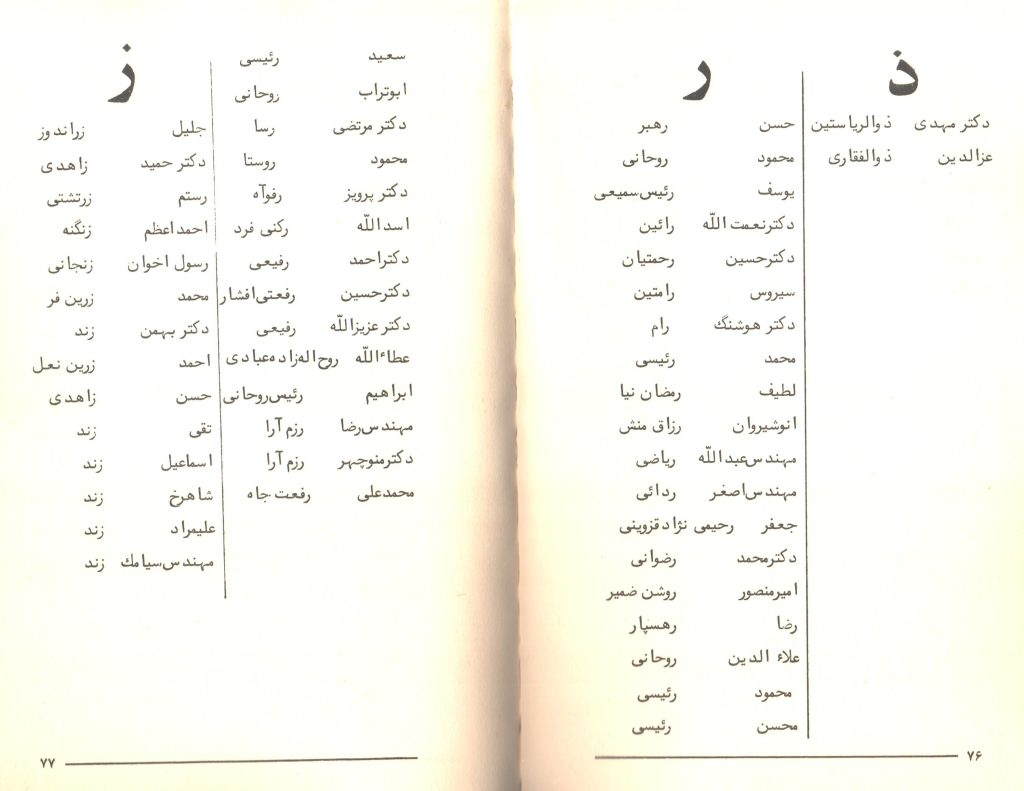 ذ
دکتر مهدی ذوالریاستین
عزالدین ذوالفقاری
ر
حسن رهبر
محمود روحانی
یوسف رئیس‌سمیعی
دکترنعمت الله رائین
دکترحسین رحمتیان
سیروس رامتین
دکتر هوشنگ رام
محمد رئیسی
لطیف رمضان نیا
انوشیروان رزاق منش
مهندس‌عبدالله ریاضی
مهندس‌اصغر ردائی
جعفر رحیمی نژادقزوینی
دکترمحمد رضوانی
امیرمنصور روشن ضمیر
رضا رهسپار
علاء الدین روحانی
محمود رئیسی
محسن رئیسی
۷۶
سعید رئیسی
ابوتراب روحانی
دکتر مرتضی رسا
محمود روستا
دکتر پرویز رفوآه
اسدالله رکنی فرد
دکتراحمد رفیعی
دکترحسین رفعتی‌افشار
دکتر عزیزالله رفیعی
عطاءالله روح‌اله‌زاده‌عبادی
ابراهیم رئیس‌روحانی
مهندس‌رضا رزم آرا
دکترمنوچهر رزم آرا
محمدعلی رفعت جاه
ز
جلیل زراندوز
دکتر حمید زاهدی
رستم زرتشتی
احمداعظم زنگنه
رسول اخوان زنجانی
محمد زرین فر
دکتر بهمن زند
احمد زرین نعل
حسن زاهدی
تقی زند
اسماعیل زند
شاهرخ زند
علیمراد زند
مهندس‌سیامك زند
۷۷